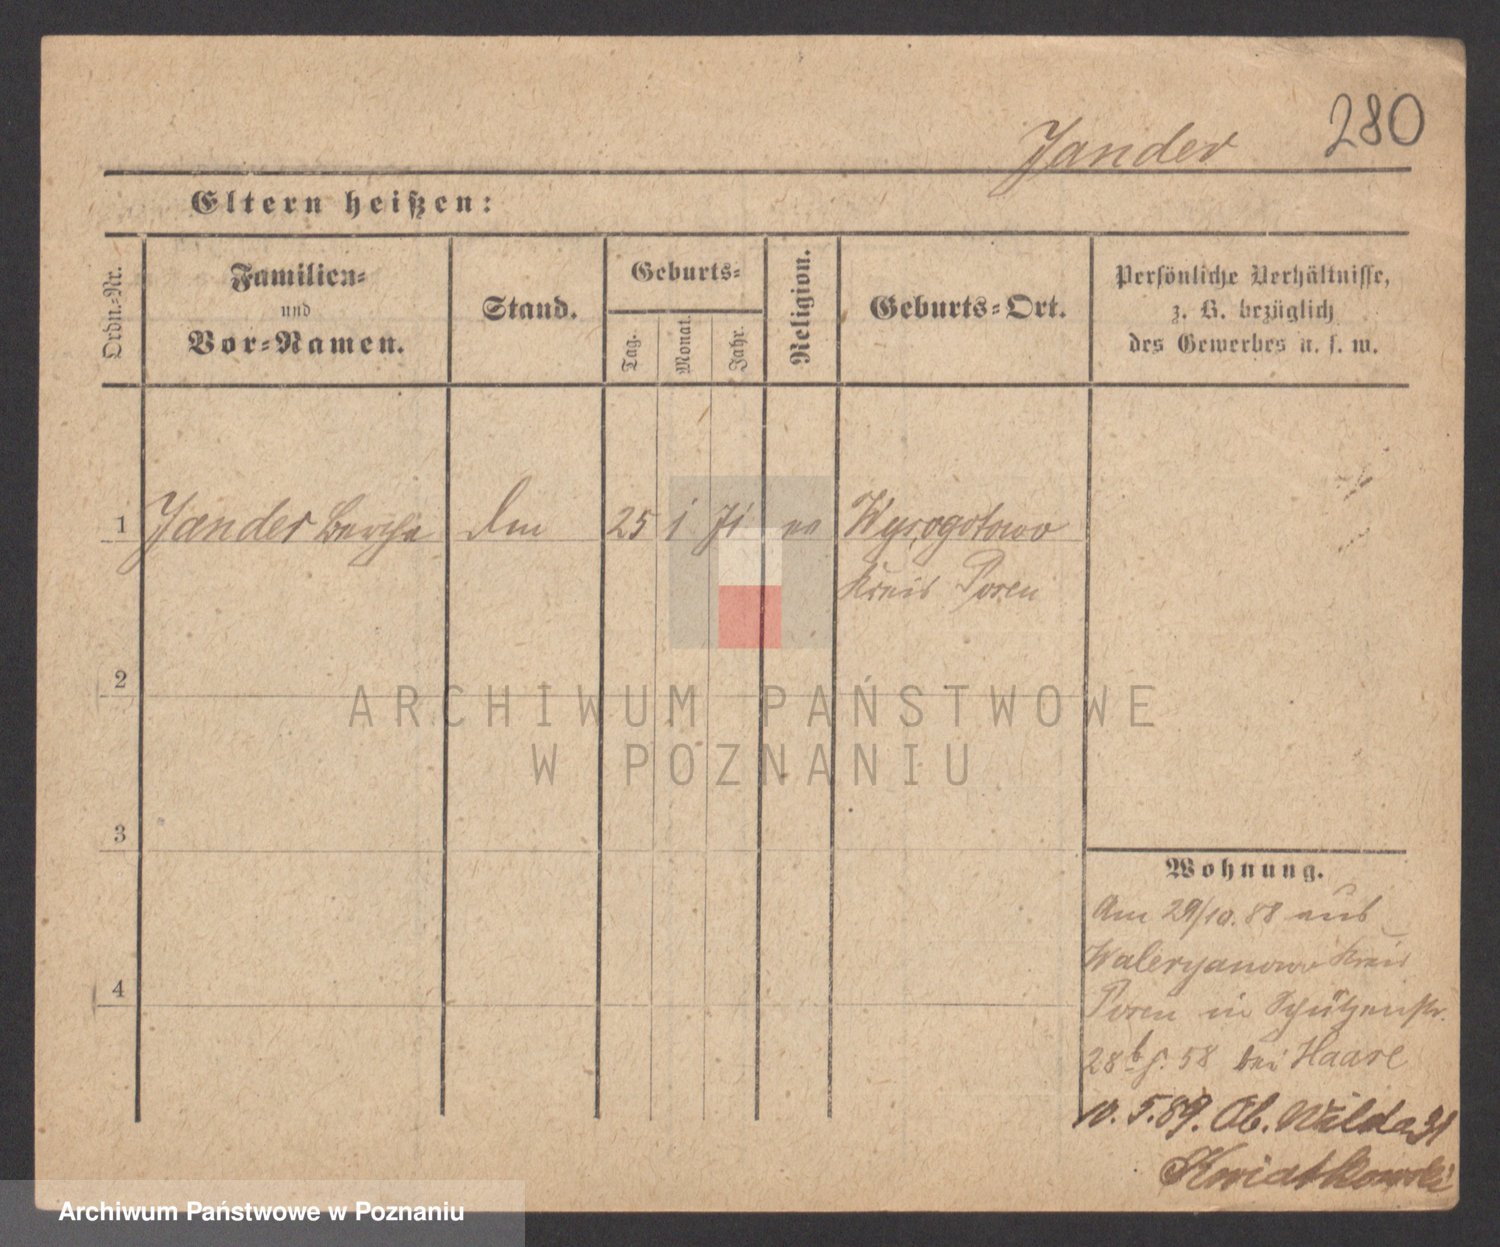 280
Jander
Eltern heißen:
Ordn.-Nr.
Familien-
und
Vor-Namen.
Stand.
Geburts-
Tag.
Monat.
Jahr.
Religion.
Geburts-Ort.
Persönliche Verhältnisse,
z. B. bezüglich
des Gewerbes u. s. w.
1 Jander Bertha 25 1 71 Wysogotowo
Kreis Posen
2
3
4
Wohnung.
Am 29/10.88 aus
Waleryanowo Kreis
Posen in Schützenstr.
28 b bei Haase
10.5.89. Ob. Wilda 31
Kwiatkowski
ARCHIWUM PAŃSTWOWE
W POZNANIU
Archiwum Państwowe w Poznaniu